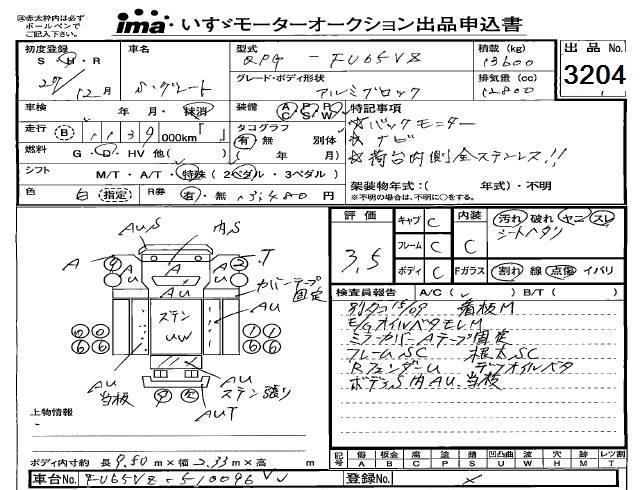 ㊟赤太枠内は必ず
ボールペンで
ご記入下さい。
ima いすゞモーターオークション出品申込書
初度登録 S・H・R 27/12月
車名 ふ・グレート
型式 QPG - FU65VZ
積載(kg) 13600
出品No. 3204
グレード・ボディ形状 アルミブロック
排気量(cc) 12800
車検 年 月・抹消
装備 A/C P/S R/W
特記事項
☆バックモニター
☆ナビ
☆荷台内側全ステンレス!!
走行 B 1139 000km「 」
タコグラフ 有 無 別体 ( 年 月)
燃料 G・D・HV 他( )
シフト M/T・A/T・特殊 (2ペダル・3ペダル)
架装物年式:( 年式)・不明
※不明の場合は、不明に○をする。
色 白 指定 R券 有・無 13,480 円
評価 3.5
キャブ C
フレーム C
ボディ C
内装 C 汚れ 破れ ヤニ スレ
シートヘタリ
Fガラス 割れ 線 点傷 イバリ
検査員報告 A/C( ) B/T( )
別タコ 15/09 看板M
E/GオイルベタモレM
ミラーカバーAテープ固定
フレームSC 根太SC
RフェンダーU デフオイルベタ
ボデーS内AU、当板
AU,S
内,S
A
A
.T
AU
カバーテープ固定
AU
ステン
UW
AU
当板
AU
ステン張り
AUT
上物情報
-
ボディ内寸約 長 9.50 m × 幅 2.33 m × 高 m
記号 傷 A 板金 B 腐 C 塗 P 錆 S 凹凸曲 U 波 W 穴 H 跡 M レツ割 T
車台No. FU65VZ-510096
登録No.